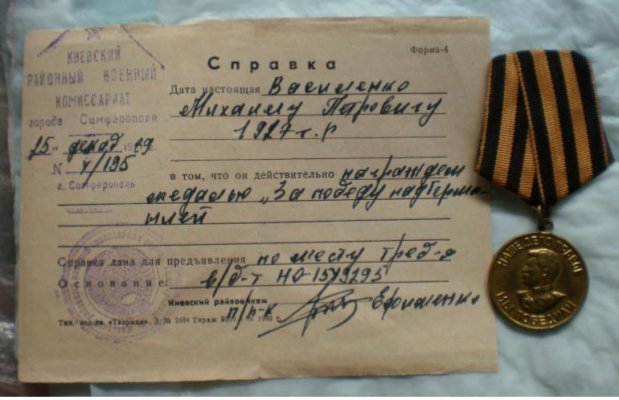 КИЕВСКИЙ
РАЙОННЫЙ ВОЕННЫЙ
КОМИССАРИАТ
города Симферополя
25 декаб 1989
N х/195
г. Симферополь
Форма-4
Справка
Дата настоящая Василенко
Михаилу Петровичу
1927 г.р
в том, что он действительно награжден
медалью „За победу над Герма
нией
Справка дана для предъявления по месту треб-я
Основание: в/б-т НО-1579295
Киевский райвоенком
п/п-к Ефименко
Тип. изд-ва «Таврида». З. № 2684 Тираж
НАШЕ ДЕЛО ПРАВОЕ
МЫ ПОБЕДИЛИ